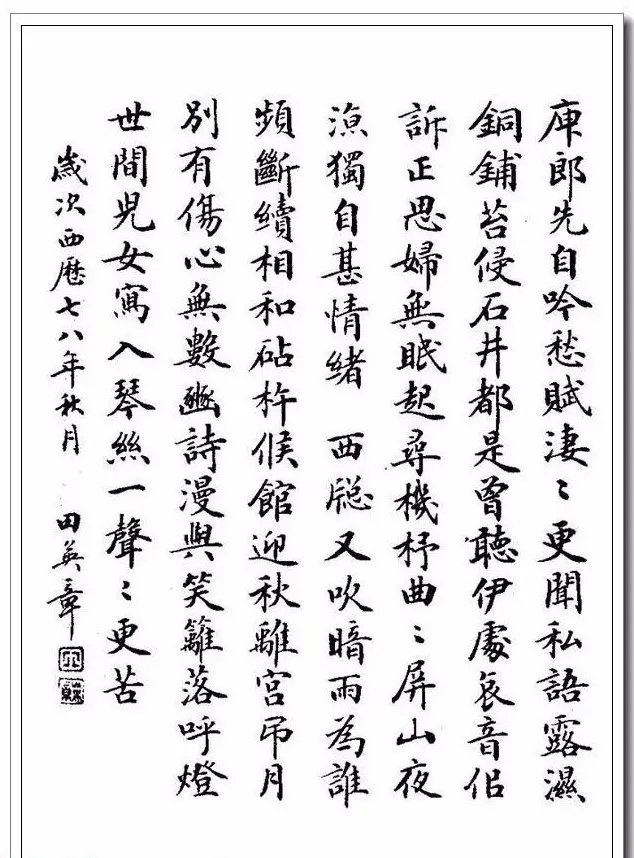 庾郎先自吟愁賦淒〻更聞私語露濕
銅鋪苔侵石井都是曾聽伊處哀音佀
訴正思婦無眠起尋機杼曲〻屏山夜
涼獨自甚情緒 西窗又吹暗雨為誰
頻斷續相和砧杵候館迎秋離宮弔月
別有傷心無數豳詩漫與笑籬落呼燈
世間兒女寫入琴絲一聲〻更苦
歲次西曆七八年秋月 田英章